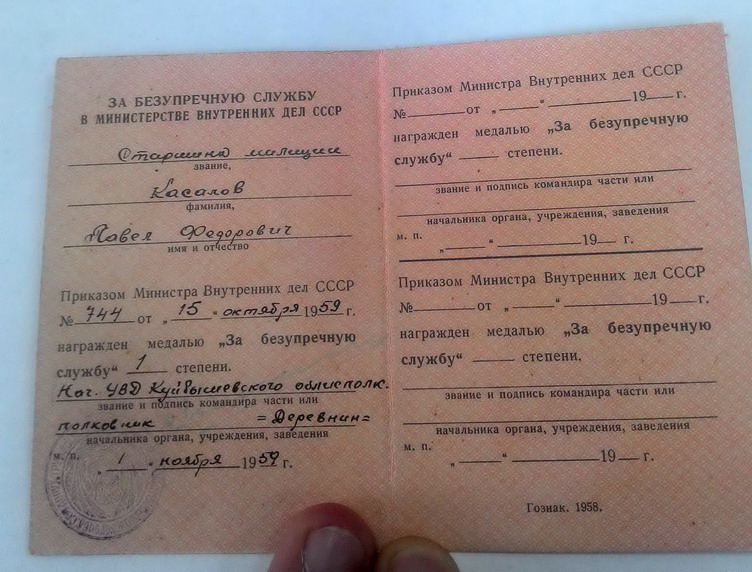 ЗА БЕЗУПРЕЧНУЮ СЛУЖБУ
В МИНИСТЕРСТВЕ ВНУТРЕННИХ ДЕЛ СССР
Старшина милиции
звание,
Касалов
фамилия,
Павел Федорович
имя и отчество
Приказом Министра Внутренних дел СССР
№ 744 от „15“ октября 1959 г.
награжден медалью „За безупречную
службу“ 1 степени.
Нач. УВД Куйбышевского облисполк.
звание и подпись командира части или
полковник =Деревнин=
начальника органа, учреждения, заведения
м. п.
„1“ ноября 1959 г.
Приказом Министра Внутренних дел СССР
№ от „ “ 19 г.
награжден медалью „За безупречную
службу“ степени.
звание и подпись командира части или
начальника органа, учреждения, заведения
м. п.
„ “ 19 г.
Приказом Министра Внутренних дел СССР
№ от „ “ 19 г.
награжден медалью „За безупречную
службу“ степени.
звание и подпись командира части или
начальника органа, учреждения, заведения
м. п.
„ “ 19 г.
Гознак. 1958.